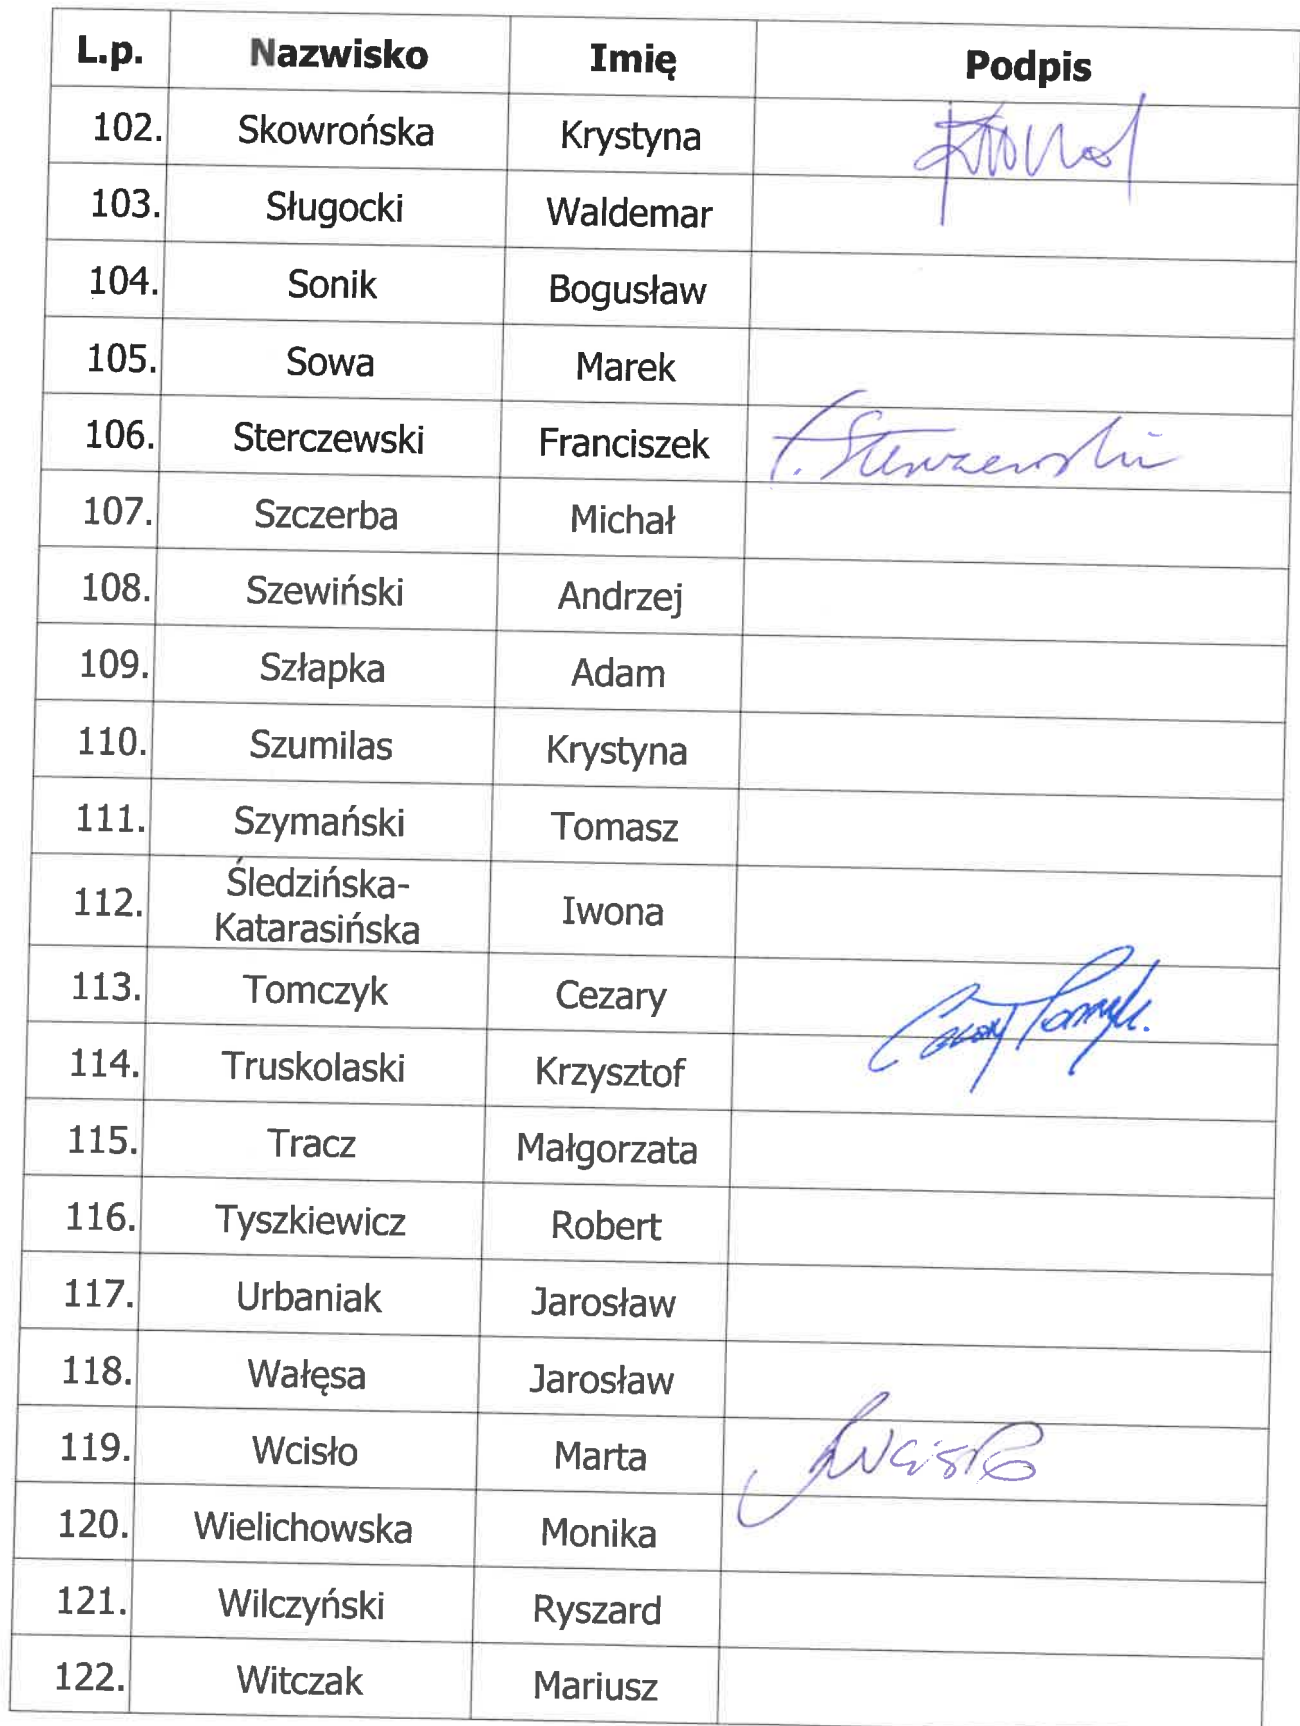 L.p. Nazwisko Imię Podpis
102. Skowrońska Krystyna
103. Sługocki Waldemar
104. Sonik Bogusław
105. Sowa Marek
106. Sterczewski Franciszek F. Sterczewski
107. Szczerba Michał
108. Szewiński Andrzej
109. Szłapka Adam
110. Szumilas Krystyna
111. Szymański Tomasz
Śledzińska-
112. Iwona
Katarasińska
113. Tomczyk Cezary Cezary Tomczyk.
114. Truskolaski Krzysztof
115. Tracz Małgorzata
116. Tyszkiewicz Robert
117. Urbaniak Jarosław
118. Wałęsa Jarosław
119. Wcisło Marta MWcisło
120. Wielichowska Monika
121. Wilczyński Ryszard
122. Witczak Mariusz